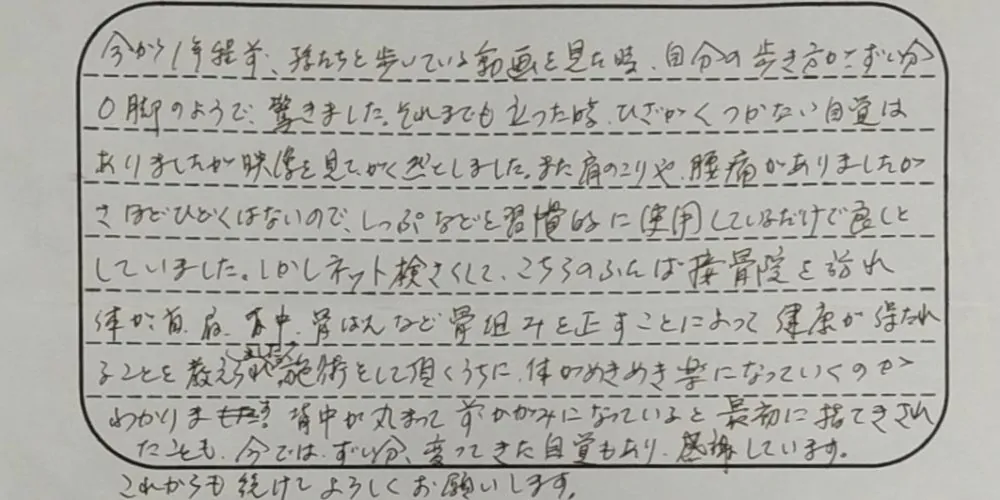 今から1年程前、孫たちと歩いている動画を見た時、自分の歩き方がずい分
O脚のようで、驚きました。それまでも立った時、ひざがくっつかない自覚は
ありましたが映像を見てがく然としました。また肩のこりや、腰痛がありましたが
さほどひどくはないので、しっぷなどを習慣的に使用しているだけで良しと
していました。しかしネット検さくして、こちらのふんば接骨院を訪れ
体が、首、肩、背中、骨ばんなど骨組みを正すことによって健康が保たれ
ることを教えられ施術をして頂くうちに、体がめきめき楽になっていくのが
わかりました。背中が丸まって前かがみになっていると最初に指てきされ
たことも、今では、ずい分、変ってきた自覚もあり、感謝しています。
これからも続けてよろしくお願いします。